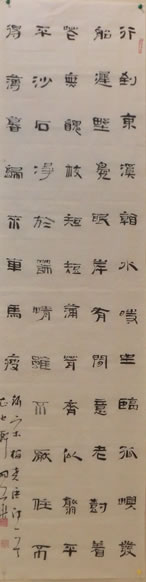 行到東溪看水時坐臨孤嶼發
船遲野鳧眠岸有閒意老樹着
花無醜枝短短蒲茸齊似翦平
平沙石淨於篩情雖不厭住不
得薄暮歸來車馬疲
梅堯臣詩一首